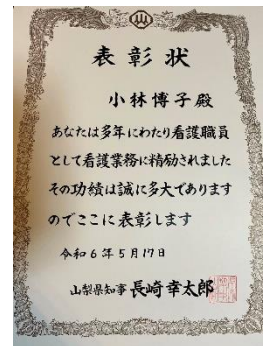 表彰状
小林博子殿
あなたは多年にわたり看護職員
として看護業務に精励されました
その功績は誠に多大であります
のでここに表彰します
令和6年5月17日
山梨県知事 長崎幸太郎